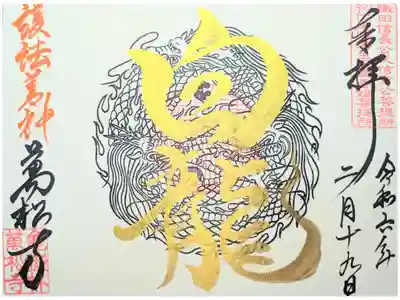 奉拝
令和六年
二月十九日
白龍
護法善神
萬松寺